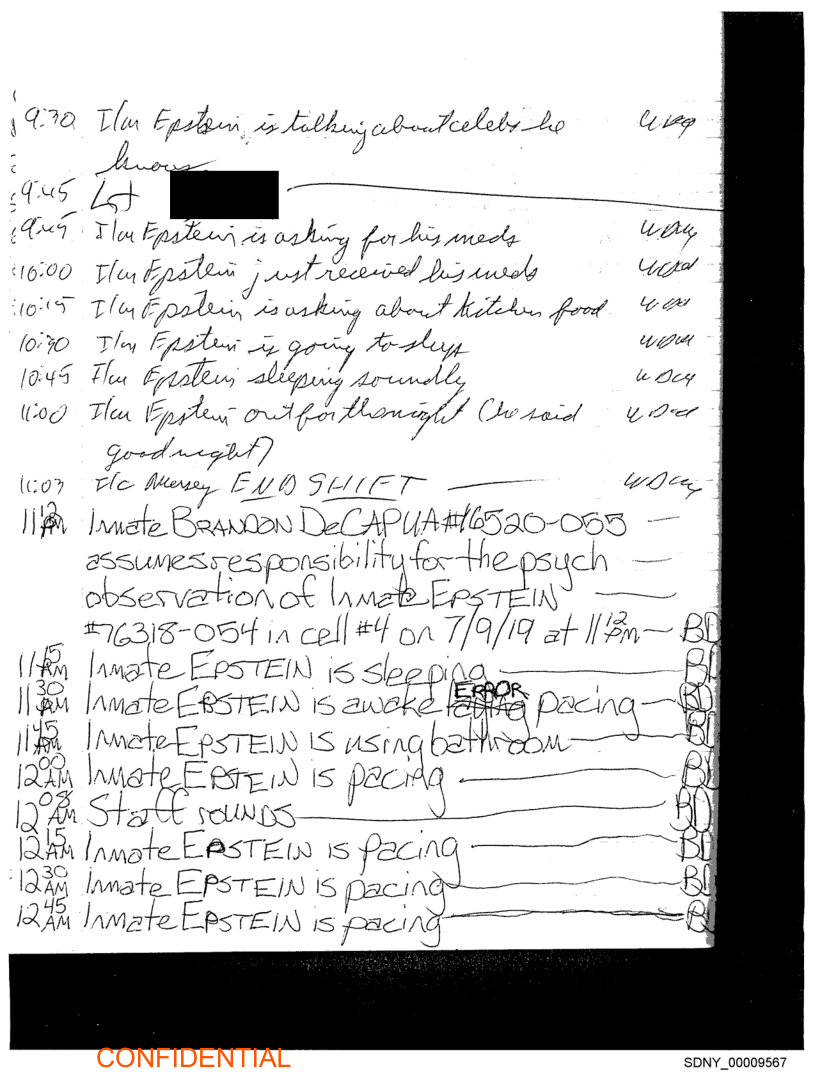 9:30 I/m Epstein is talking about celebs he
knows.
9:45 Lt
9:45 I/m Epstein is asking for his meds
10:00 I/m Epstein just received his meds
10:15 I/m Epstein is asking about Kitchen food
10:30 I/m Epstein is going to sleep
10:45 I/m Epstein sleeping soundly
11:00 I/m Epstein out for the night (he said
good night)
11:03 I/C END SHIFT
11 12 PM Inmate BRANDON DeCAPUA #16520-055
assumes responsibility for the psych
observation of Inmate EPSTEIN
#76318-054 in cell #4 on 7/9/19 at 11 12 PM BD
11 15 PM Inmate EPSTEIN is sleeping BD
11 30 PM Inmate EPSTEIN is awake ERROR pacing BD
11 45 PM Inmate EPSTEIN is using bathroom BD
12 00 AM Inmate EPSTEIN is pacing BD
12 08 AM Staff rounds BD
12 15 AM Inmate EPSTEIN is pacing BD
12 30 AM Inmate EPSTEIN is pacing BD
12 45 AM Inmate EPSTEIN is pacing
CONFIDENTIAL
SDNY_00009567